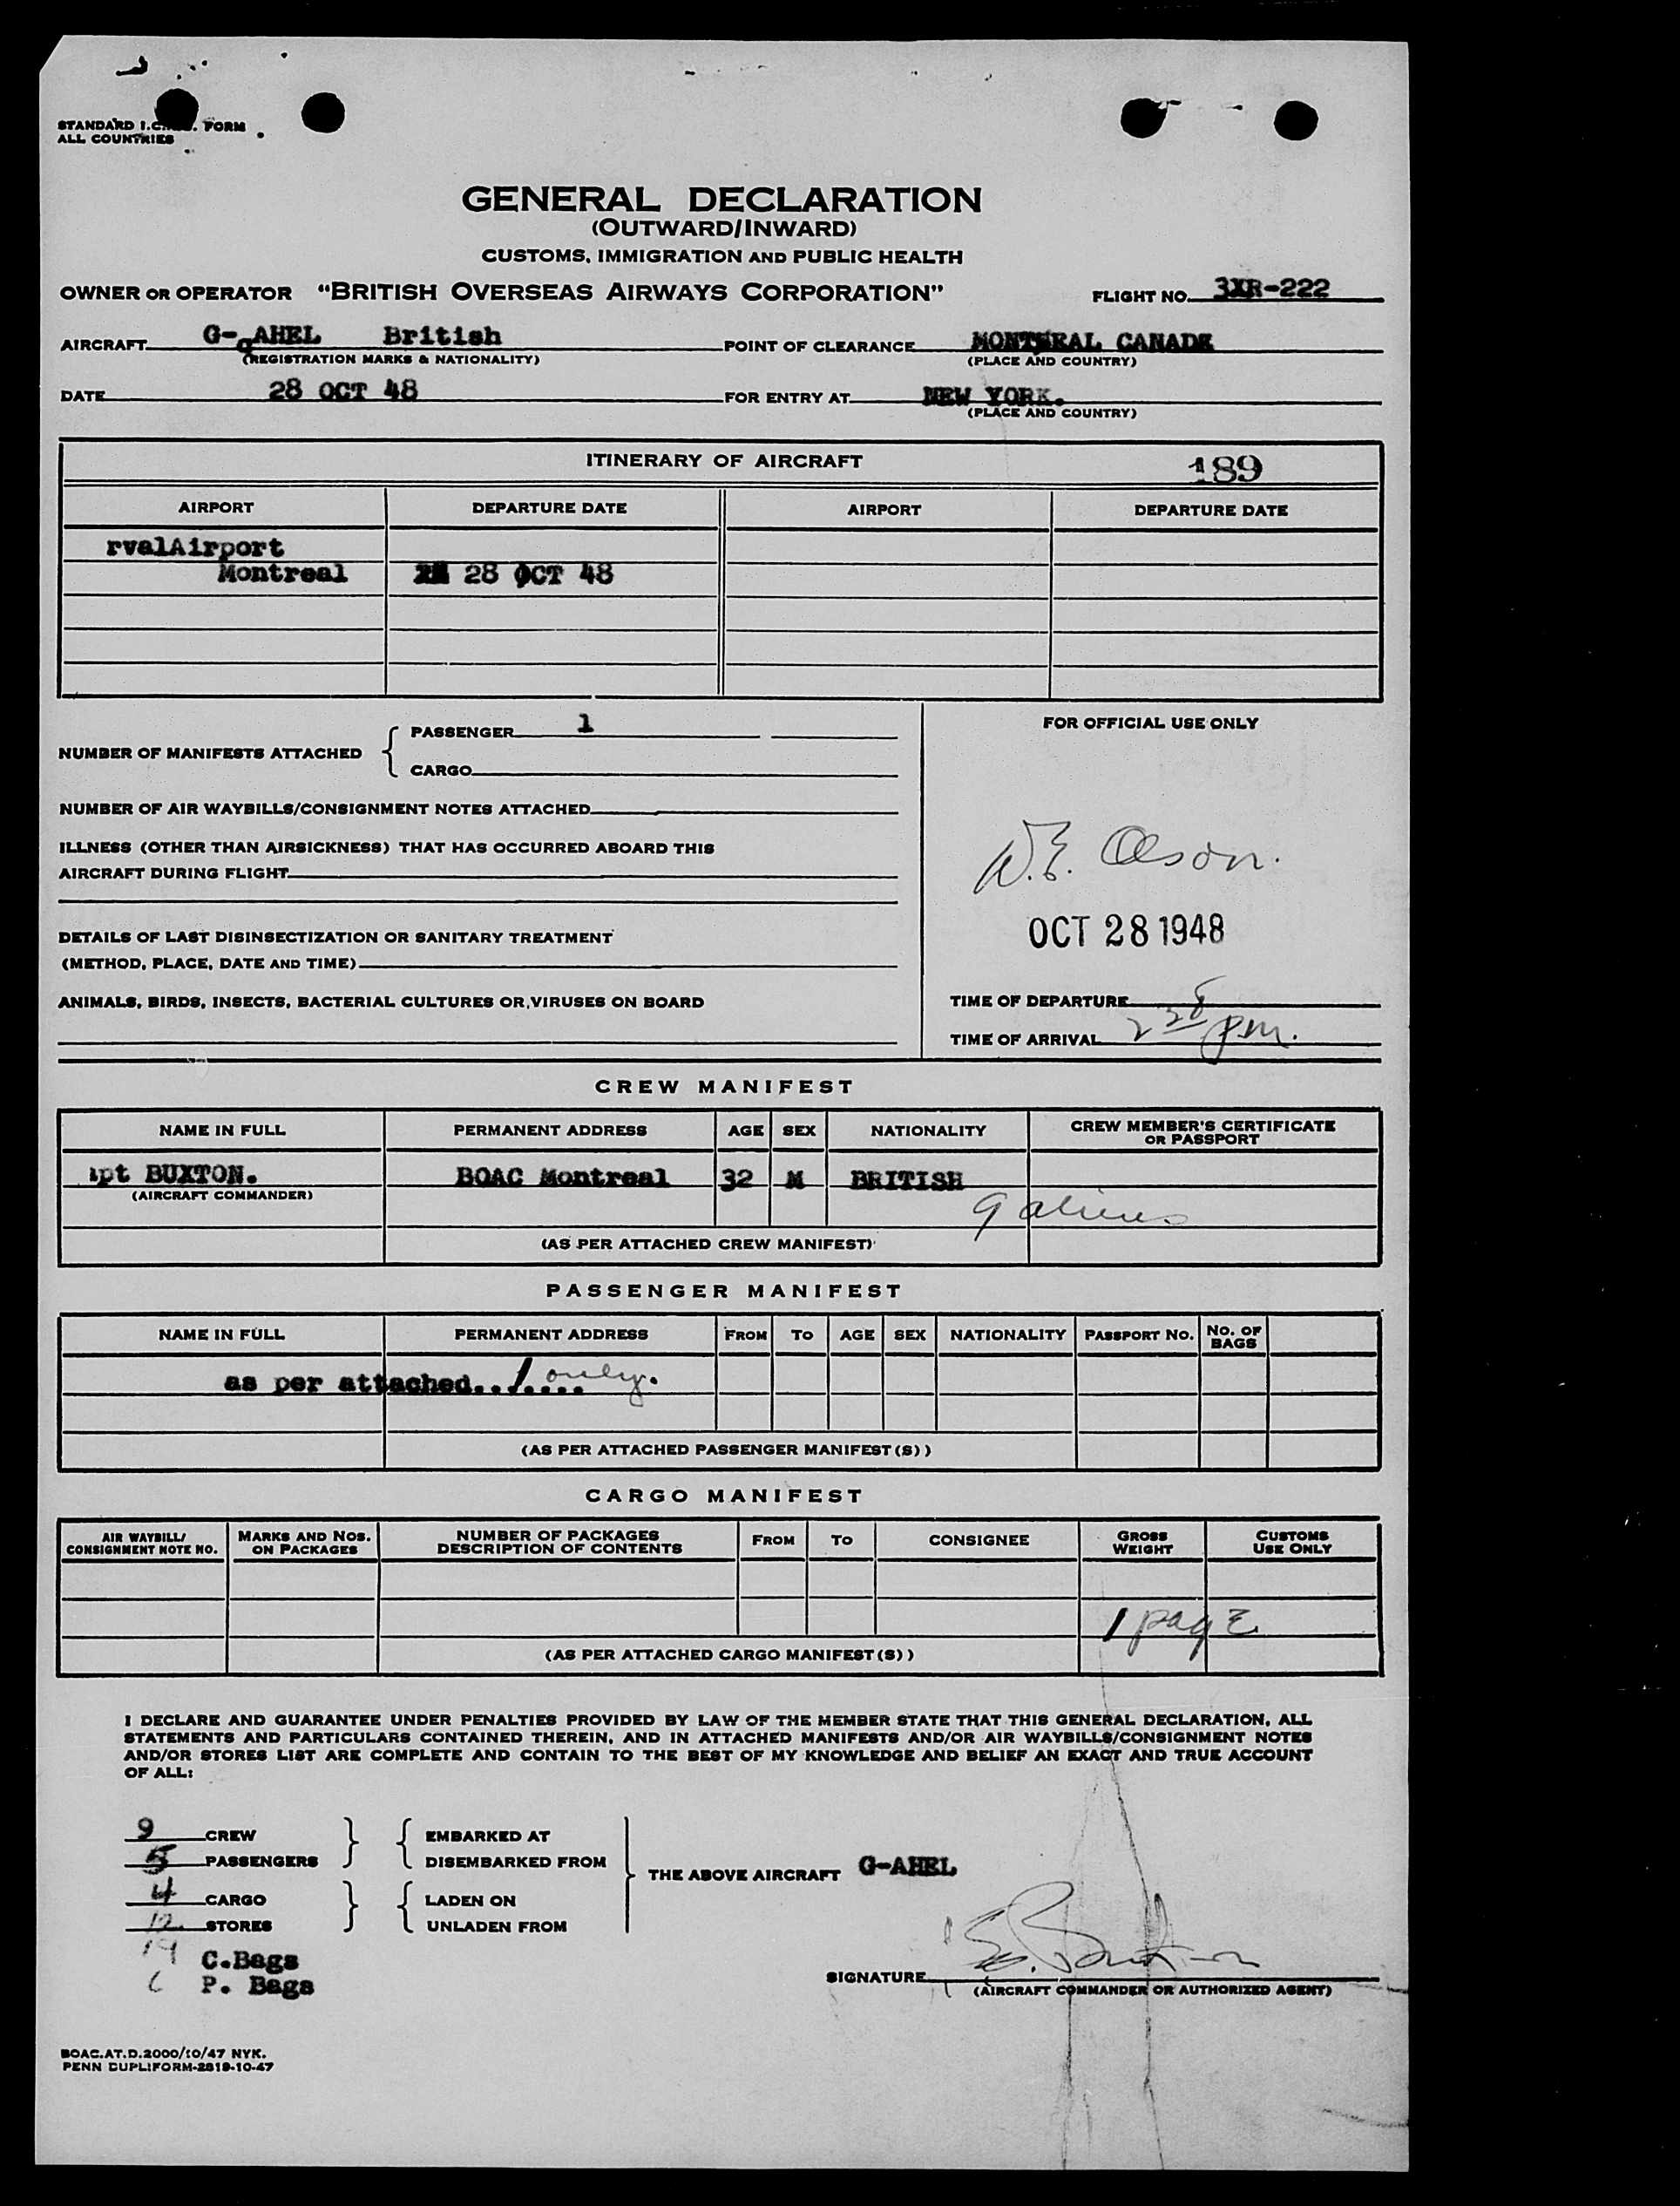 STANDARD I.C. FORM
ALL COUNTRIES
GENERAL DECLARATION
(OUTWARD/INWARD)
CUSTOMS, IMMIGRATION AND PUBLIC HEALTH
OWNER OR OPERATOR "BRITISH OVERSEAS AIRWAYS CORPORATION" FLIGHT NO. 3XR-222
AIRCRAFT G-AHEL British POINT OF CLEARANCE MONTREAL CANADA
(REGISTRATION MARKS & NATIONALITY) (PLACE AND COUNTRY)
DATE 28 OCT 48 FOR ENTRY AT NEW YORK.
(PLACE AND COUNTRY)
ITINERARY OF AIRCRAFT 189
AIRPORT DEPARTURE DATE AIRPORT DEPARTURE DATE
rvalAirport
Montreal 28 OCT 48
NUMBER OF MANIFESTS ATTACHED
PASSENGER 1
CARGO
NUMBER OF AIR WAYBILLS/CONSIGNMENT NOTES ATTACHED
ILLNESS (OTHER THAN AIRSICKNESS) THAT HAS OCCURRED ABOARD THIS
AIRCRAFT DURING FLIGHT
DETAILS OF LAST DISINSECTIZATION OR SANITARY TREATMENT
(METHOD, PLACE, DATE AND TIME)
ANIMALS, BIRDS, INSECTS, BACTERIAL CULTURES OR VIRUSES ON BOARD
FOR OFFICIAL USE ONLY
W.E. Olson.
OCT 28 1948
TIME OF DEPARTURE
TIME OF ARRIVAL 2 28 pm.
CREW MANIFEST
NAME IN FULL PERMANENT ADDRESS AGE SEX NATIONALITY CREW MEMBER'S CERTIFICATE
OR PASSPORT
apt BUXTON. BOAC Montreal 32 M BRITISH
(AIRCRAFT COMMANDER)
9 aliens
(AS PER ATTACHED CREW MANIFEST)
PASSENGER MANIFEST
NAME IN FULL PERMANENT ADDRESS FROM TO AGE SEX NATIONALITY PASSPORT NO. NO. OF
BAGS
as per attached....... 1 only.
(AS PER ATTACHED PASSENGER MANIFEST(S))
CARGO MANIFEST
AIR WAYBILL/
CONSIGNMENT NOTE NO.
MARKS AND NOS.
ON PACKAGES
NUMBER OF PACKAGES
DESCRIPTION OF CONTENTS
FROM TO CONSIGNEE
GROSS
WEIGHT
CUSTOMS
USE ONLY
1 page
(AS PER ATTACHED CARGO MANIFEST(S))
I DECLARE AND GUARANTEE UNDER PENALTIES PROVIDED BY LAW OF THE MEMBER STATE THAT THIS GENERAL DECLARATION, ALL
STATEMENTS AND PARTICULARS CONTAINED THEREIN, AND IN ATTACHED MANIFESTS AND/OR AIR WAYBILLS/CONSIGNMENT NOTES
AND/OR STORES LIST ARE COMPLETE AND CONTAIN TO THE BEST OF MY KNOWLEDGE AND BELIEF AN EXACT AND TRUE ACCOUNT
OF ALL:
9 CREW
5 PASSENGERS
4 CARGO
12 STORES
19 C.Bags
6 P. Bags
EMBARKED AT
DISEMBARKED FROM
LADEN ON
UNLADEN FROM
THE ABOVE AIRCRAFT G-AHEL
SIGNATURE
(AIRCRAFT COMMANDER OR AUTHORIZED AGENT)
BOAC.AT.D.2000/10/47 NYK.
PENN DUPLIFORM-2819-10-47